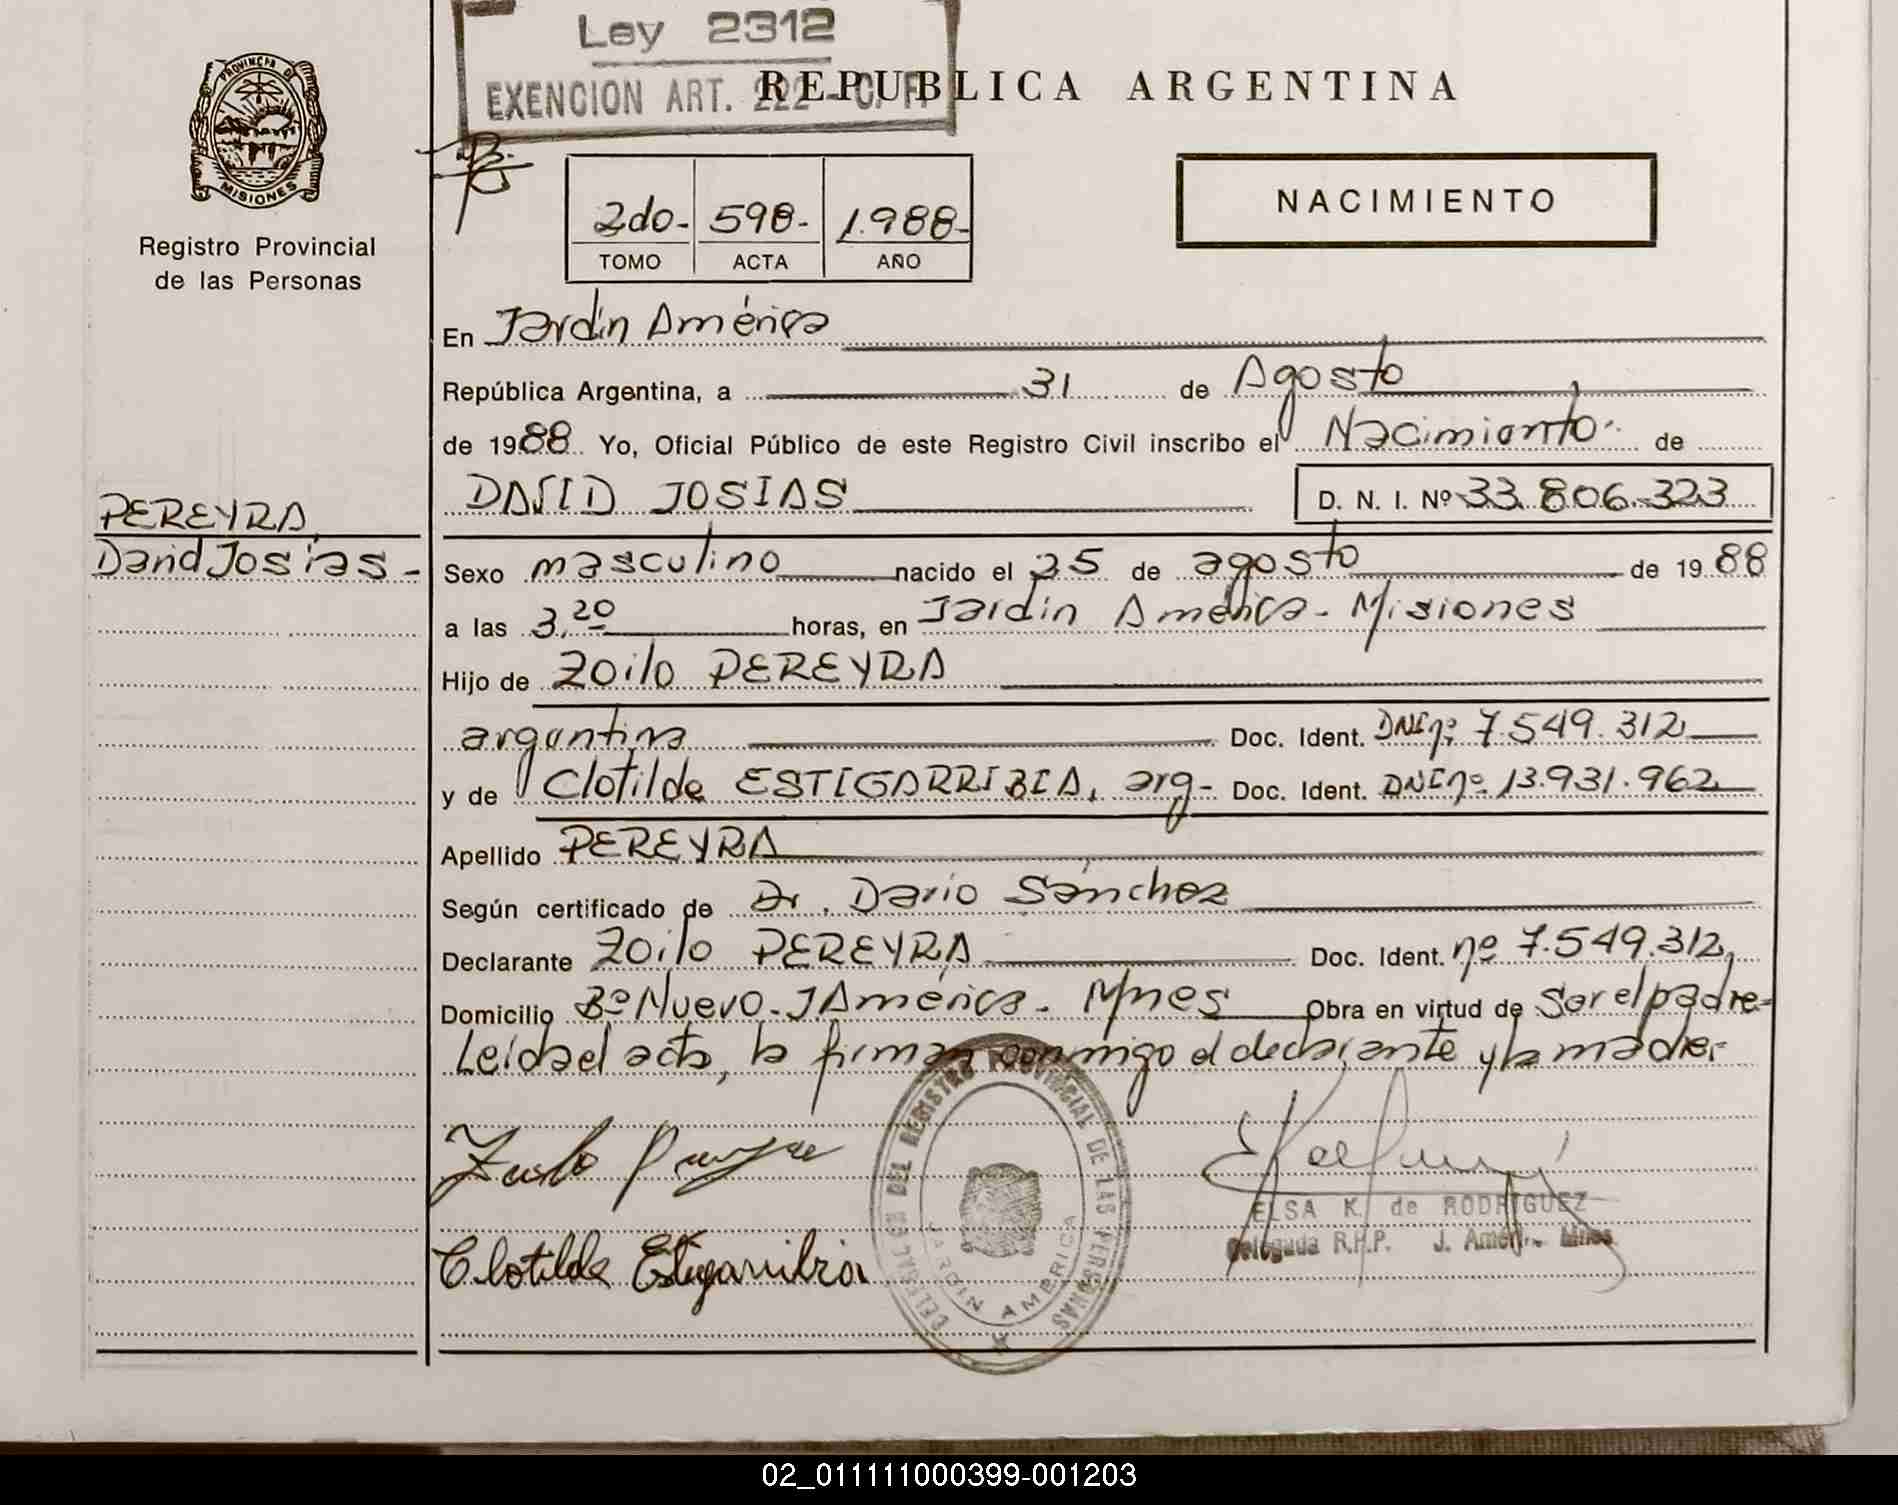 Ley 2312
EXENCION ART. 222 - C. F.
REPUBLICA ARGENTINA
PROVINCIA DE
MISIONES
Registro Provincial
de las Personas
2do- 598- 1.988-
TOMO ACTA AÑO
NACIMIENTO
En Jardín América
República Argentina, a 31 de Agosto
de 1988 Yo, Oficial Público de este Registro Civil inscribo el Nacimiento de
DAVID JOSIAS D. N. I. Nº 33.806.323
PEREYRA,
David Josias -
Sexo masculino nacido el 25 de agosto de 1988
a las 3,20 horas, en Jardín América - Misiones
Hijo de Zoilo PEREYRA
argentina Doc. Ident. DNI nº 7.549.312
y de Clotilde ESTIGARRIBIA, arg- Doc. Ident. DNI nº 13.931.962
Apellido PEREYRA
Según certificado de Dr. Dario Sánchez
Declarante Zoilo PEREYRA Doc. Ident. nº 7.549.312,
Domicilio Bº Nuevo - J América - Mnes Obra en virtud de Ser el padre-
Leída el acta, la firman conmigo el declarante y la madre-
DEL REGISTRO PROVINCIAL DE LAS PERSONAS
JARDIN AMERICA
Clotilde Estigarribia
ELSA K. de RODRIGUEZ
Delegada R.P.P. J. Amér. - Mnes
02_011111000399-001203